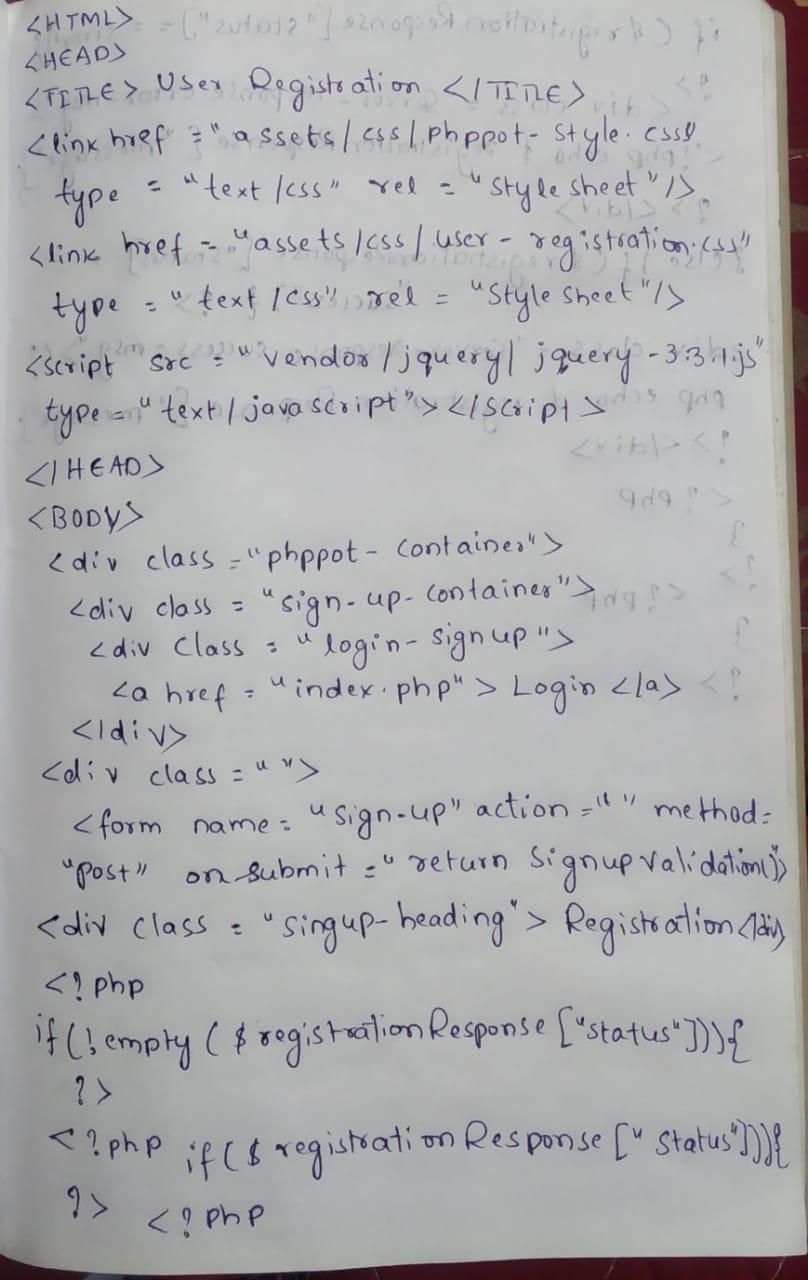 <HTML>
<HEAD>
<TITLE> User Registration </TITLE>
<link href ="assets/css/phppot-style.css"
type = "text/css" rel = "stylesheet"/>
<link href = "assets/css/user-registration.css"
type = "text/css" rel = "stylesheet"/>
<script src = "vendor/jquery/jquery-3.3.1.js"
type = "text/javascript"></script>
</HEAD>
<BODY>
<div class ="phppot-container">
<div class = "sign-up-container">
<div class = "login-signup">
<a href = "index.php"> Login </a>
</div>
<div class = "">
<form name = "sign-up" action ="" method=
"post" onsubmit = "return signupvalidation()">
<div class = "singup-heading"> Registration</div>
<?php
if(!empty($registrationResponse["status"])){
?>
<?php if($registrationResponse["status"])){
?> <?php